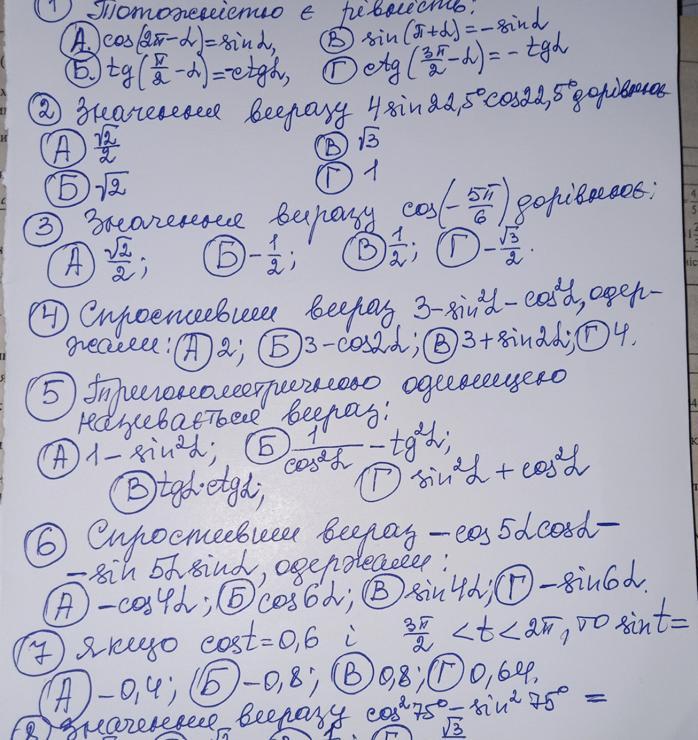 ① Тотожністю є рівність:
А. cos(2π-α)=sinα, В sin(π+α)=-sinα
Б. tg(π/2-α)=-ctgα, Г ctg(3π/2-α)=-tgα
② Значення виразу 4sin22,5°cos22,5° дорівнює
А √2/2 В √3
Б √2 Г 1
③ Значення виразу cos(-5π/6) дорівнює:
А √2/2; Б -1/2; В 1/2; Г -√3/2.
④ Спростивши вираз 3-sin²α-cos²α, одер-
жали: А 2; Б 3-cos2α; В 3+sin2α; Г 4.
⑤ Тригонометричною одиницею
називається вираз:
А 1-sin²α; Б 1/cos²α - tg²α;
В tgα·ctgα; Г sin²α + cos²α
⑥ Спростивши вираз -cos5αcosα-
-sin5αsinα, одержали:
А -cos4α; Б cos6α; В sin4α; Г -sin6α.
⑦ Якщо cost=0,6 і 3π/2 <t<2π, то sint=
А -0,4; Б -0,8; В 0,8; Г 0,64.
⑧ Значення виразу cos²75°-sin²75° =
√3